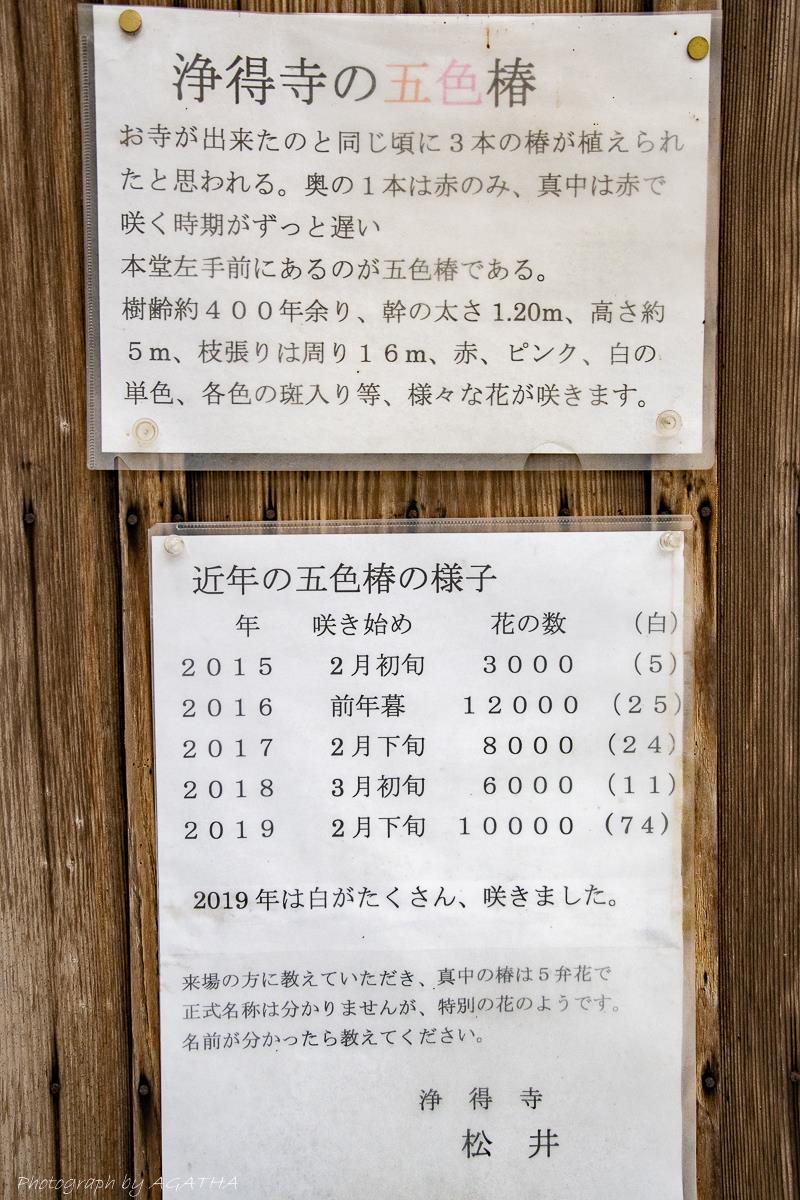 浄得寺の五色椿
お寺が出来たのと同じ頃に３本の椿が植えられ
たと思われる。奥の１本は赤のみ、真中は赤で
咲く時期がずっと遅い
本堂左手前にあるのが五色椿である。
樹齢約４００年余り、幹の太さ1.20m、高さ約
５m、枝張りは周り１６m、赤、ピンク、白の
単色、各色の斑入り等、様々な花が咲きます。
近年の五色椿の様子
年 咲き始め 花の数 （白）
２０１５ ２月初旬 ３０００ （５）
２０１６ 前年暮 １２０００ （２５）
２０１７ ２月下旬 ８０００ （２４）
２０１８ ３月初旬 ６０００ （１１）
２０１９ ２月下旬 １００００ （７４）
2019年は白がたくさん、咲きました。
来場の方に教えていただき、真中の椿は５弁花で
正式名称は分かりませんが、特別の花のようです。
名前が分かったら教えてください。
浄 得 寺
松 井
Photograph by AGATHA